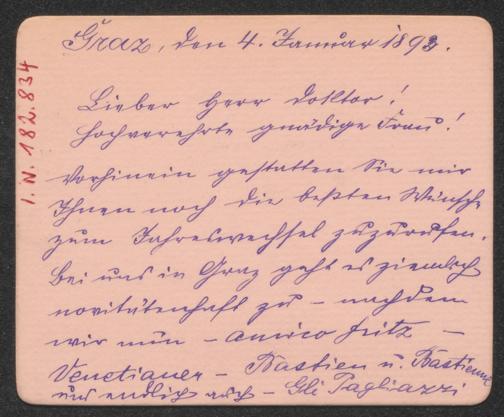 I. N. 182.834
Graz, den 4. Januar 1893.
Lieber Herr Doktor!
Hochverehrte gnädige Frau!
Vorhinein gestatten Sie mir
Ihnen noch die beßten Wünsche
zum Jahreswechsel zuzurufen.
Bei uns in Graz geht es ziemlich
novitätenhaft zu – nachdem
wir nun – amico fritz –
Venetianer – Bastien u. Bastienne
und endlich auch – Gli Pagliazzi